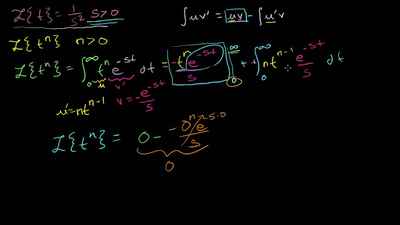 ℒ{t} = 1/s² s>0
∫uv' = uv - ∫u'v
ℒ{tⁿ} n>0
ℒ{tⁿ} = ∫₀^∞ tⁿ e^(-st) dt = -tⁿ e^(-st)/s |₀^∞ + + ∫₀^∞ n tⁿ⁻¹ e^(-st)/s dt
u v'
u' = ntⁿ⁻¹ v = -e^(-st)/s
ℒ{tⁿ} = 0 - -0ⁿ e^(-s·0)/s
0